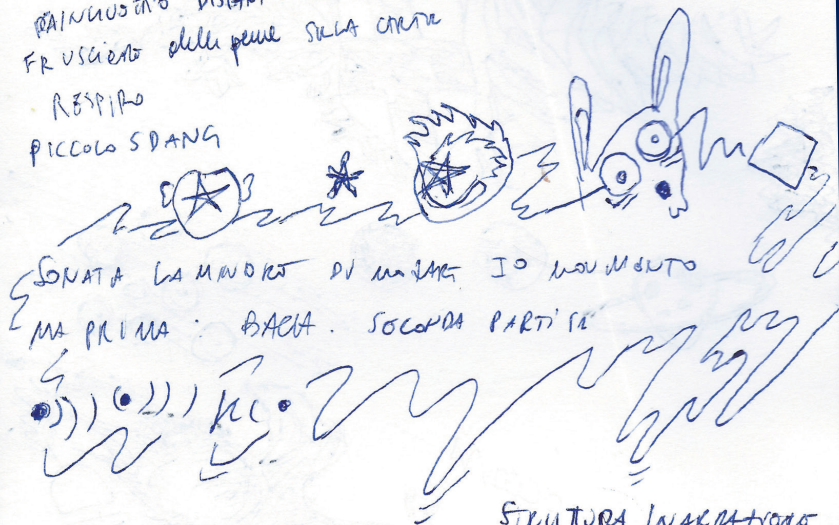 FRUSCIARE delle penne SULLA CARTA
RESPIRO
PICCOLO SDANG
SONATA LA MINORE DI MOZART Io MOVIMENTO
MA PRIMA : BACH. SECONDA PARTITA
STRUTTURA